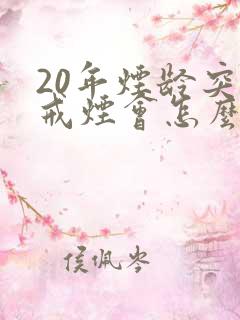 20年煙齡突
戒煙會怎麼
侯佩岑